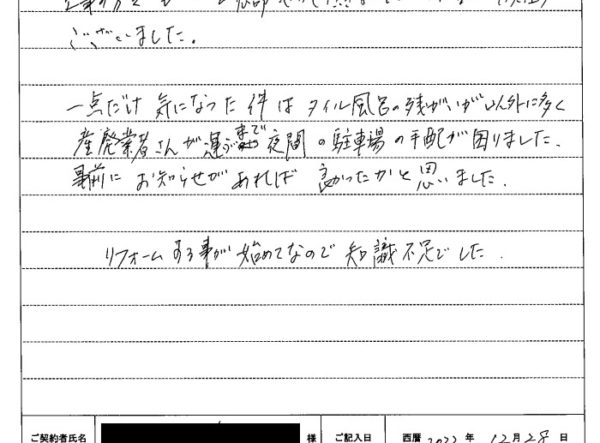 ございました。
一点だけ 気になった件は タイル風呂の残がいが いがい以外に多く
産廃業者さんが運ぶまで 夜間の駐車場の手配が困りました。
事前に お知らせがあれば 良かったかと思いました。
リフォームする事が 始めてなので 知識不足でした。
ご契約者氏名 様 ご記入日 西暦 2022 年 12 月 28 日